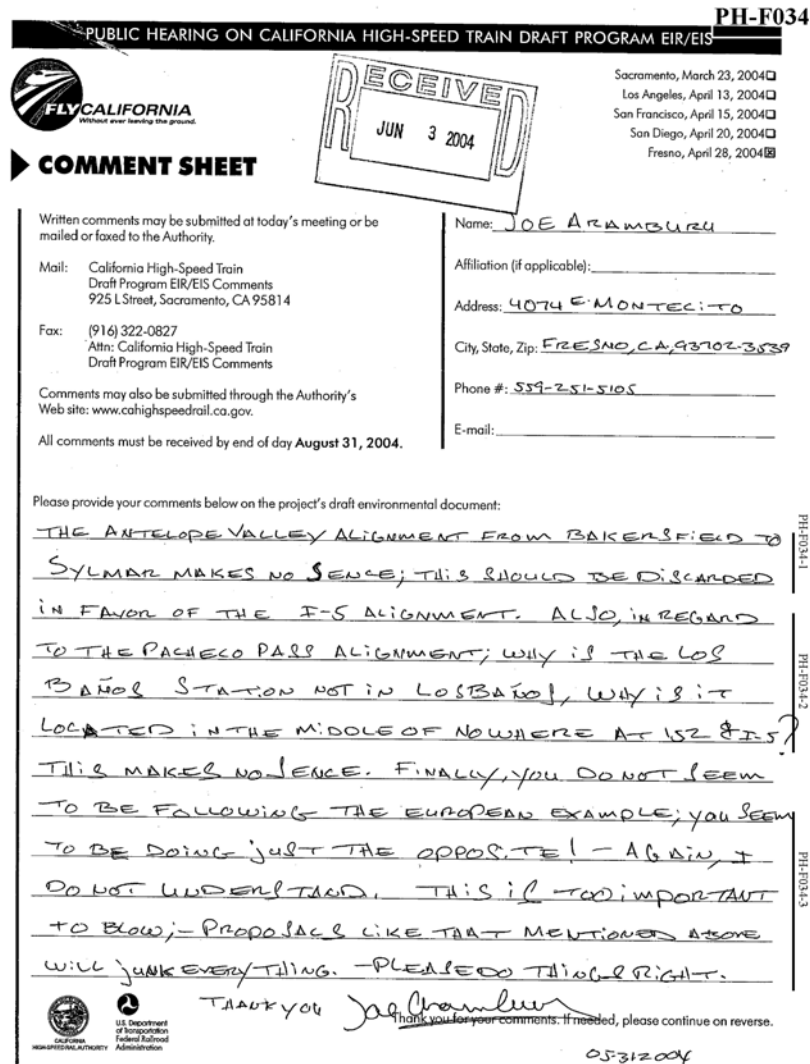 PH-F034
PUBLIC HEARING ON CALIFORNIA HIGH-SPEED TRAIN DRAFT PROGRAM EIR/EIS
FLYCALIFORNIA
Without ever leaving the ground.
RECEIVED
JUN 3 2004
Sacramento, March 23, 2004☐
Los Angeles, April 13, 2004☐
San Francisco, April 15, 2004☐
San Diego, April 20, 2004☐
Fresno, April 28, 2004☒
COMMENT SHEET
Written comments may be submitted at today's meeting or be
mailed or faxed to the Authority.
Mail: California High-Speed Train
Draft Program EIR/EIS Comments
925 L Street, Sacramento, CA 95814
Fax: (916) 322-0827
Attn: California High-Speed Train
Draft Program EIR/EIS Comments
Comments may also be submitted through the Authority's
Web site: www.cahighspeedrail.ca.gov.
All comments must be received by end of day August 31, 2004.
Name: JOE ARAMBURU
Affiliation (if applicable):
Address: 4074 E. MONTECITO
City, State, Zip: FRESNO, CA, 93702-3539
Phone #: 559-251-5105
E-mail:
Please provide your comments below on the project's draft environmental document:
THE ANTELOPE VALLEY ALIGNMENT FROM BAKERSFIELD TO
SYLMAR MAKES NO SENCE; THIS SHOULD BE DISCARDED
IN FAVOR OF THE I-5 ALIGNMENT. ALSO, IN REGARD
TO THE PACHECO PASS ALIGNMENT; WHY IS THE LOS
BAÑOS STATION NOT IN LOS BAÑOS, WHY IS IT
LOCATED IN THE MIDDLE OF NOWHERE AT 152 & I-5?
THIS MAKES NO SENCE. FINALLY, YOU DO NOT SEEM
TO BE FOLLOWING THE EUROPEAN EXAMPLE; YOU SEEM
TO BE DOING JUST THE OPPOSITE! - AGAIN, I
DO NOT UNDERSTAND. THIS IS TOO IMPORTANT
TO BLOW; - PROPOSALS LIKE THAT MENTIONED ABOVE
WILL JUNK EVERYTHING. - PLEASE DO THINGS RIGHT.
THANK YOU Joe Aramburu
Thank you for your comments. If needed, please continue on reverse.
05-31-2004
PH-F034-1
PH-F034-2
PH-F034-3
CALIFORNIA
HIGH-SPEED RAIL AUTHORITY
U.S. Department
of Transportation
Federal Railroad
Administration